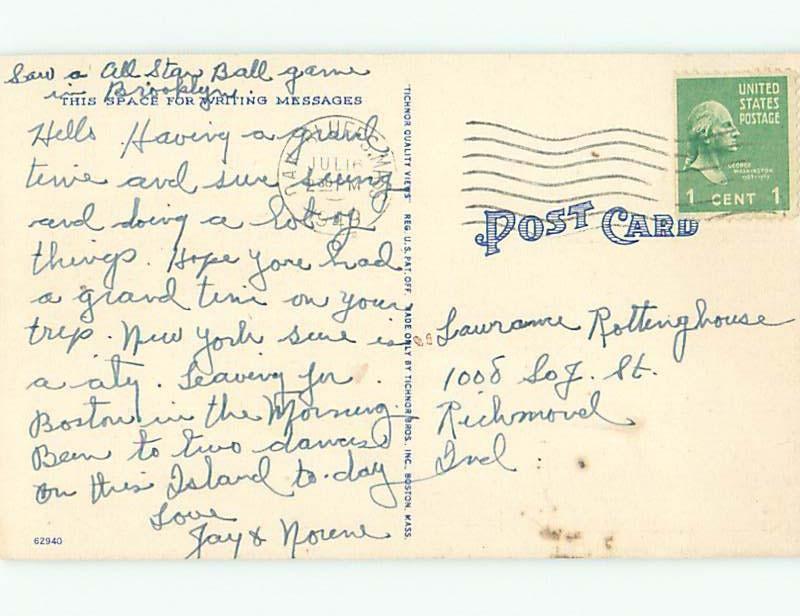 Saw a All Star Ball game
in Brooklyn.
THIS SPACE FOR WRITING MESSAGES
Hello Having a grand
time and sure seeing
and doing a lot of
things. Hope youre had
a grand time on your
trip. New York sure is
a city. Leaving for
Boston in the Morning
Been to two dances
on this Island to-day
Love
Jay & Norene
62940
TICHNOR QUALITY VIEWS REG. U.S. PAT. OFF. MADE ONLY BY TICHNOR BROS., INC., BOSTON, MASS.
JUL 18
PM
UNITED
STATES
POSTAGE
GEORGE
WASHINGTON
1 CENT 1
POST CARD
Laurame Rottinghouse
1008 So J. St.
Richmond
Ind.